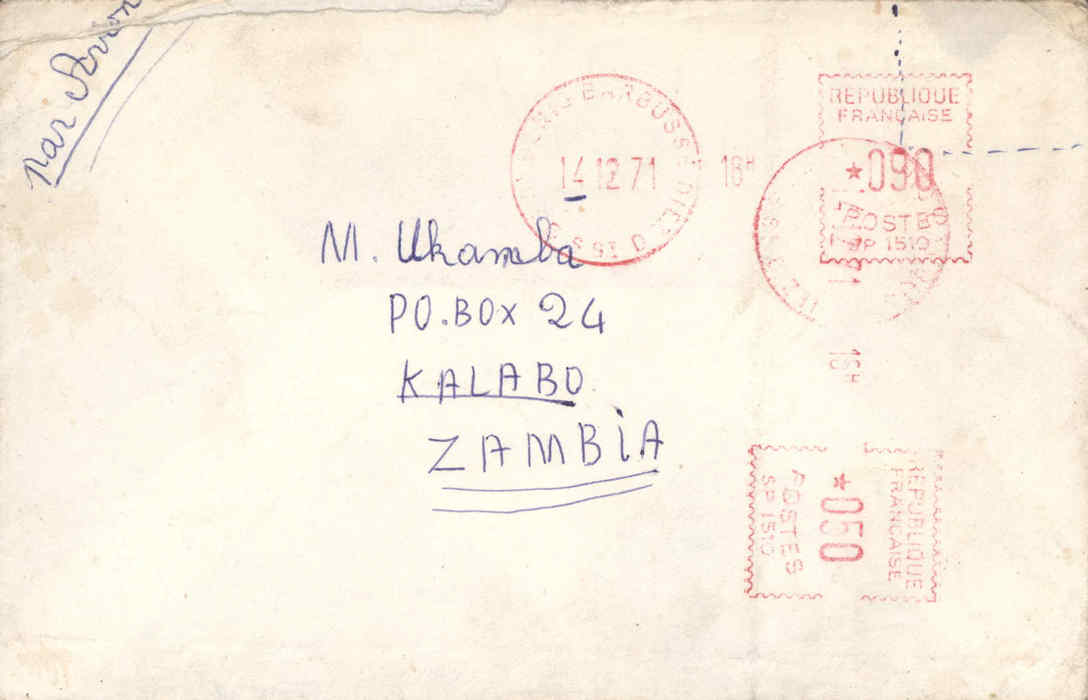 par Avion
BARBUSSE
14 12 71 16H
REPUBLIQUE
FRANÇAISE
*090
POSTES
SP 1510
M. Ukamba
PO.BOX 24
KALABO
ZAMBIA
16H
REPUBLIQUE
FRANÇAISE
*050
POSTES
SP 1510